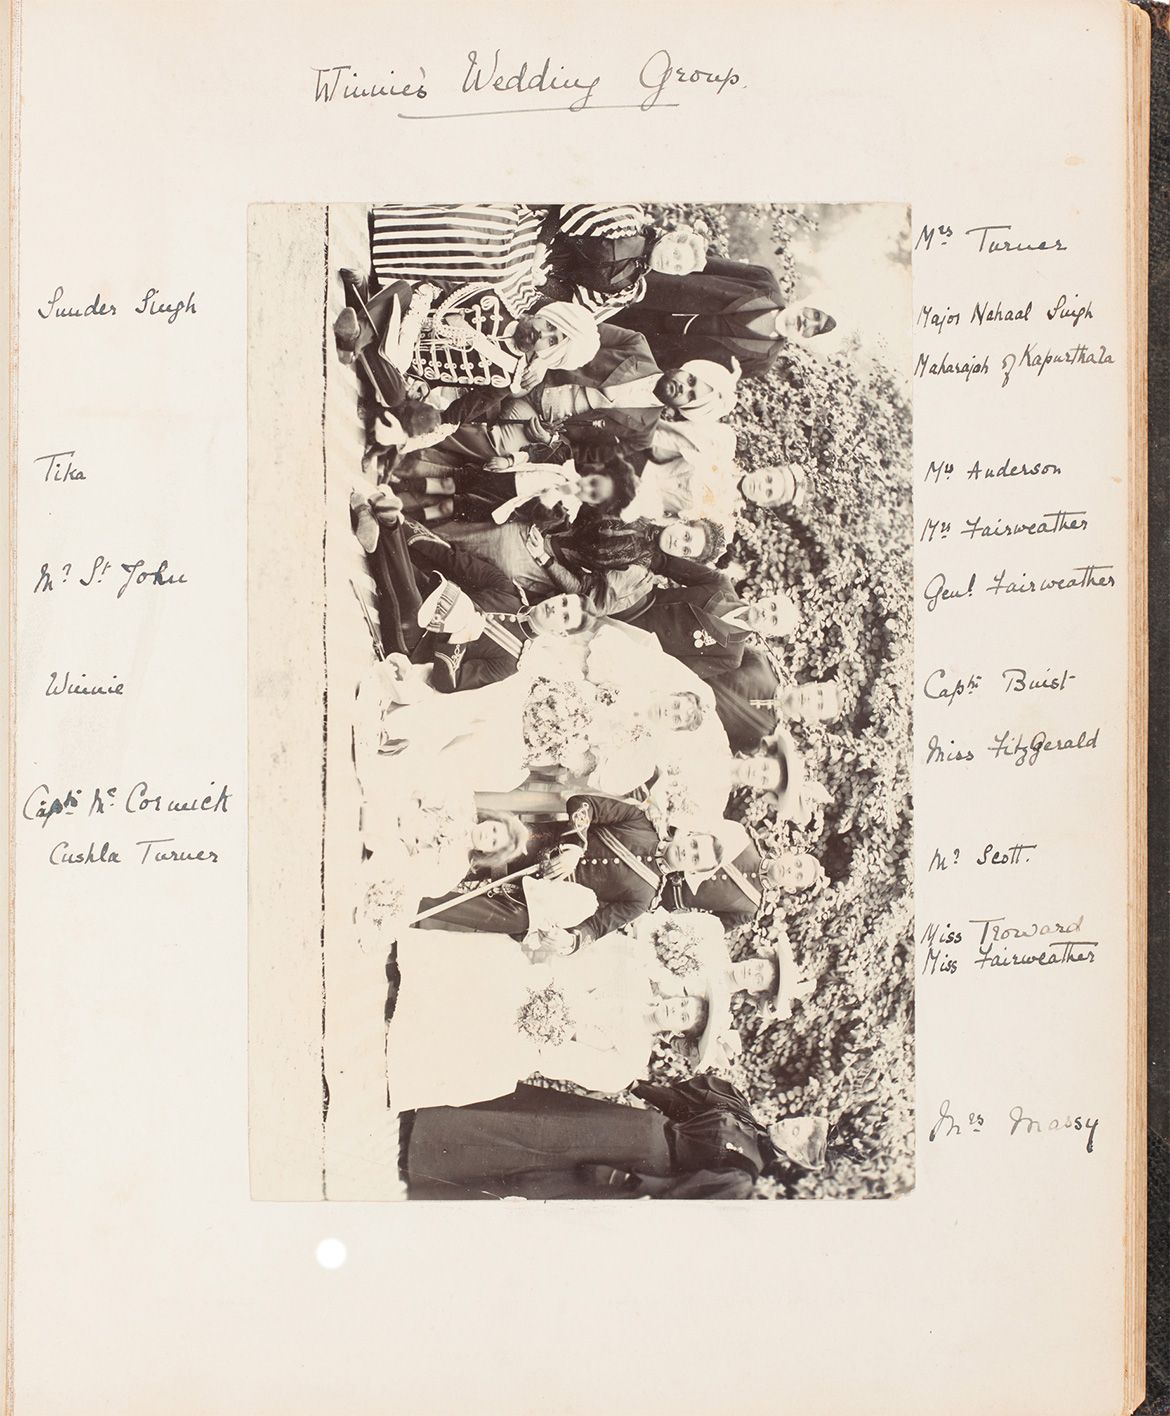 Winnie's Wedding Group.
Mrs Turner
Sunder Singh
Major Nehaal Singh
Maharajah of Kapurthala
Tika
Mrs Anderson
Mrs Fairweather
Mr St John
Genl. Fairweather
Winnie
Captn Buist
Miss FitzGerald
Captn Mc Cormick
Cushla Turner
Mr Scott.
Miss Troward
Miss Fairweather
Mrs Massy